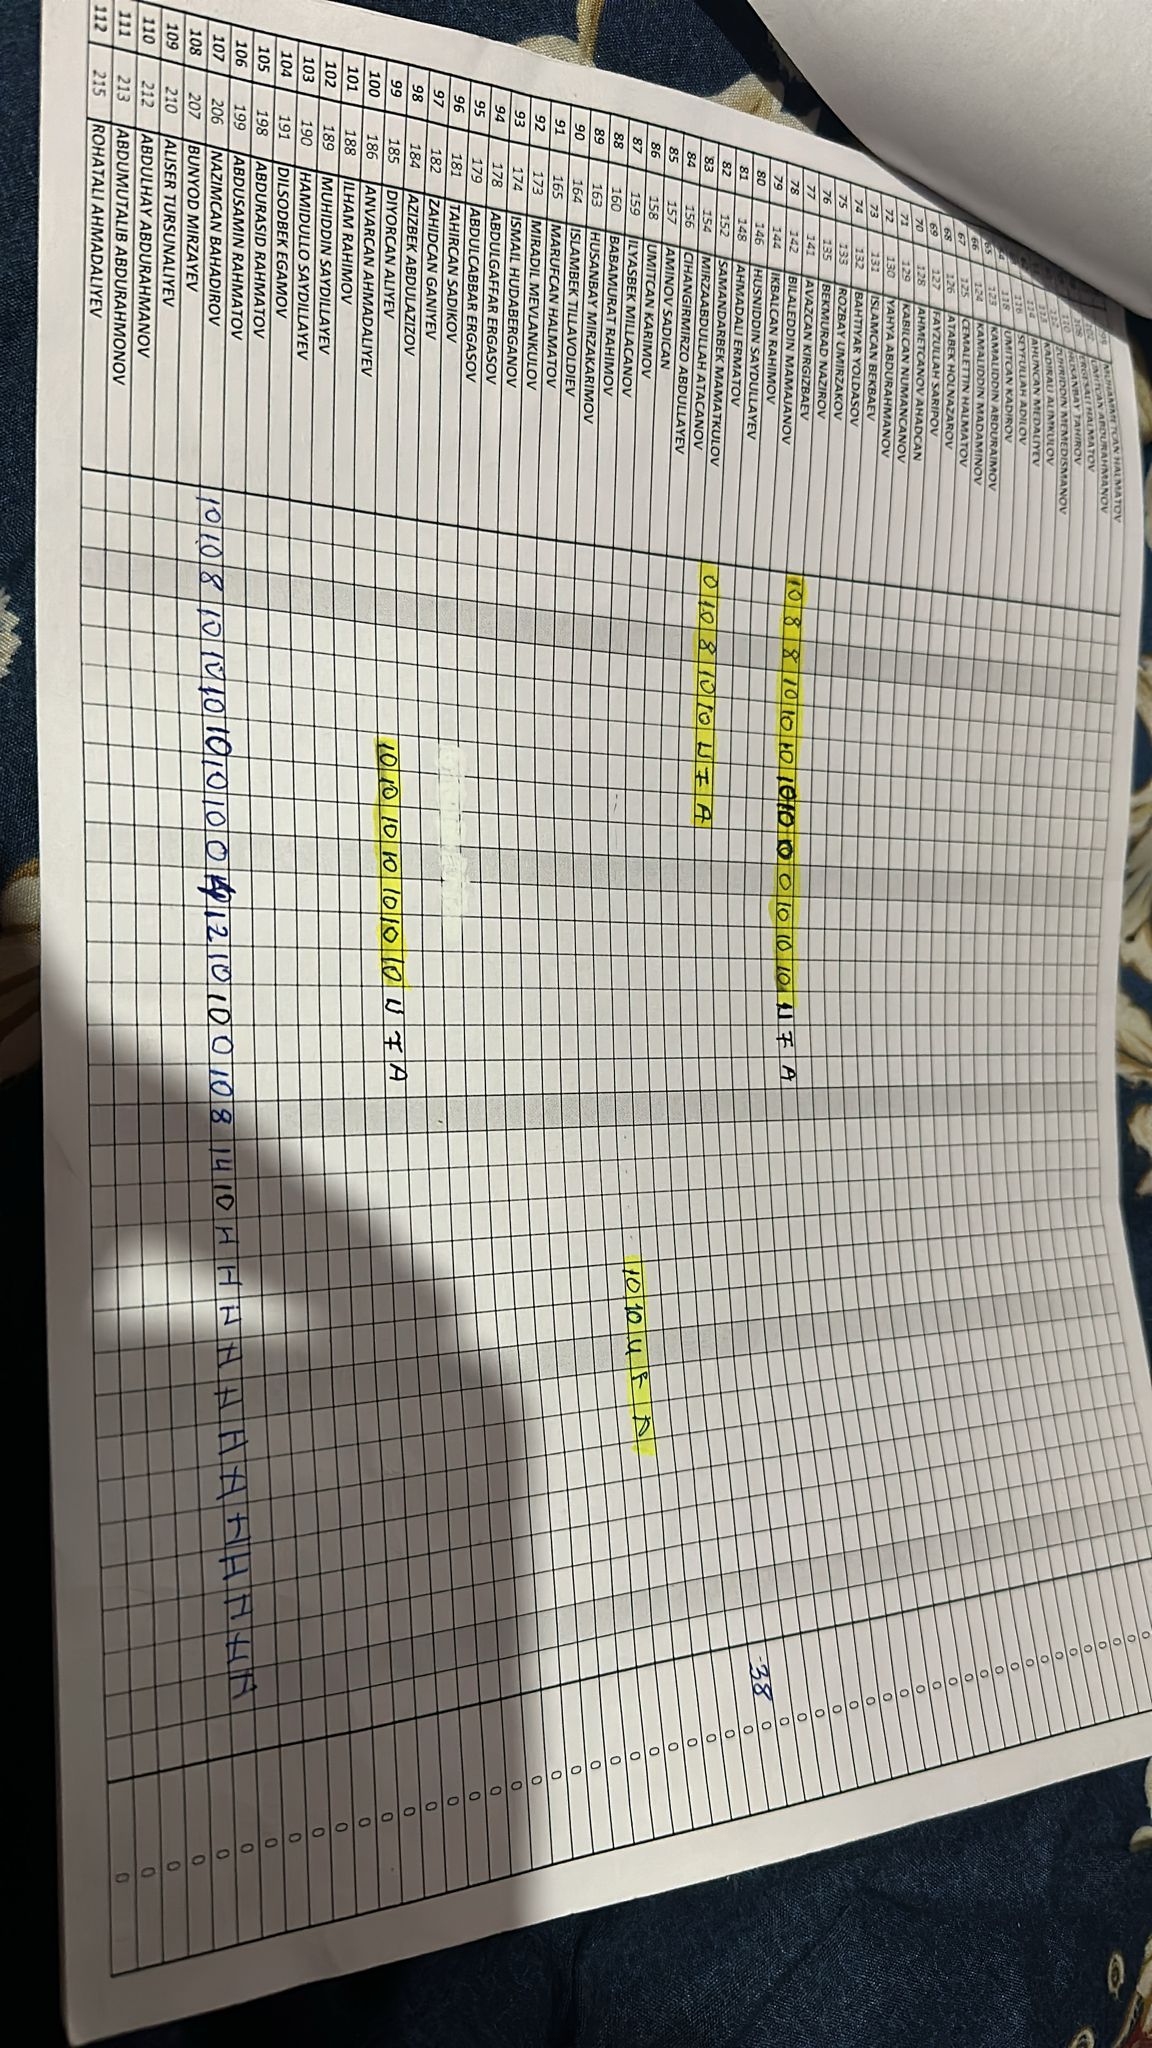 99 MUHAMMETCAN HALMATOV 0
102 UMITCAN ABDURAHMANOV 0
108 ERGESALI HALMATOV 0
110 HUSANBAY TAHIROV 0
112 ZUHRIDDIN MEMEDISMANOV 0
113 KADIRALI ALIMKULOV 0
114 AHUNCAN MEDALIYEV 0
116 SEYFULLAH ADILOV 0
64 118 UMITCAN KADIROV 0
65 123 KAMALIDDIN ABDURAIMOV 0
66 124 KAMALIDDIN MADAMINOV 0
67 125 CEMALETTIN HALMATOV 0
68 126 ATABEK HOLNAZAROV 0
69 127 FAYZULLAH SARIPOV 0
70 128 AHMETCANOV AHADCAN 0
71 129 KABILCAN NUMANCANOV 0
72 130 YAHYA ABDURAHMANOV 0
73 131 ISLAMCAN BEKBAEV 0
74 132 BAHTIYAR YOLDASOV 0
75 133 ROZBAY UMIRZAKOV 0
76 135 BEKMURAD NAZIROV 0
77 141 AVAZCAN KIRGIZBAEV 0
78 142 BILALEDDIN MAMAJANOV 10 8 8 10 10 10 10 10 0 0 10 10 10 U F A 0
79 144 IKBALCAN RAHIMOV 0
80 146 HUSNIDDIN SAYDULLAYEV -38 0
81 148 AHMADALI ERMATOV 0
82 152 SAMANDARBEK MAMATKULOV 0
83 154 MIRZAABDULLAH ATACANOV 0 10 8 10 10 U F A 0
84 156 CIHANGIRMIRZO ABDULLAYEV 0
85 157 AMINOV SADICAN 0
86 158 UMITCAN KARIMOV 0
87 159 ILYASBEK MILLACANOV 10 10 U F A 0
88 160 BABAMURAT RAHIMOV 0
89 163 HUSANBAY MIRZAKARIMOV 0
90 164 ISLAMBEK TILLAVOLDIEV 0
91 165 MARUFCAN HALMATOV 0
92 173 MIRADIL MEVLANKULOV 0
93 174 ISMAIL HUDABERGANOV 0
94 178 ABDULGAFFAR ERGASOV 0
95 179 ABDULCABBAR ERGASOV 0
96 181 TAHIRCAN SADIKOV 0
97 182 ZAHIDCAN GANIYEV 0
98 184 AZIZBEK ABDULAZIZOV 0
99 185 DIYORCAN ALIYEV 10 10 10 10 10 10 10 U F A 0
100 186 ANVARCAN AHMADALIYEV 0
101 188 ILHAM RAHIMOV 0
102 189 MUHIDDIN SAYDILLAYEV 0
103 190 HAMIDULLO SAYDILLAYEV 0
104 191 DILSODBEK EGAMOV 0
105 198 ABDURASID RAHMATOV 0
106 199 ABDUSAMIN RAHMATOV 0
107 206 NAZIMCAN BAHADIROV 10 10 8 10 10 10 10 10 10 0 14 12 10 10 0 10 8 14 10 H H H H H H H H H H H H 0
108 207 BUNYOD MIRZAYEV 0
109 210 ALISER TURSUNALIYEV 0
110 212 ABDULHAY ABDURAHMANOV 0
111 213 ABDUMUTALIB ABDURAHMONOV 0
112 215 ROHATALI AHMADALIYEV